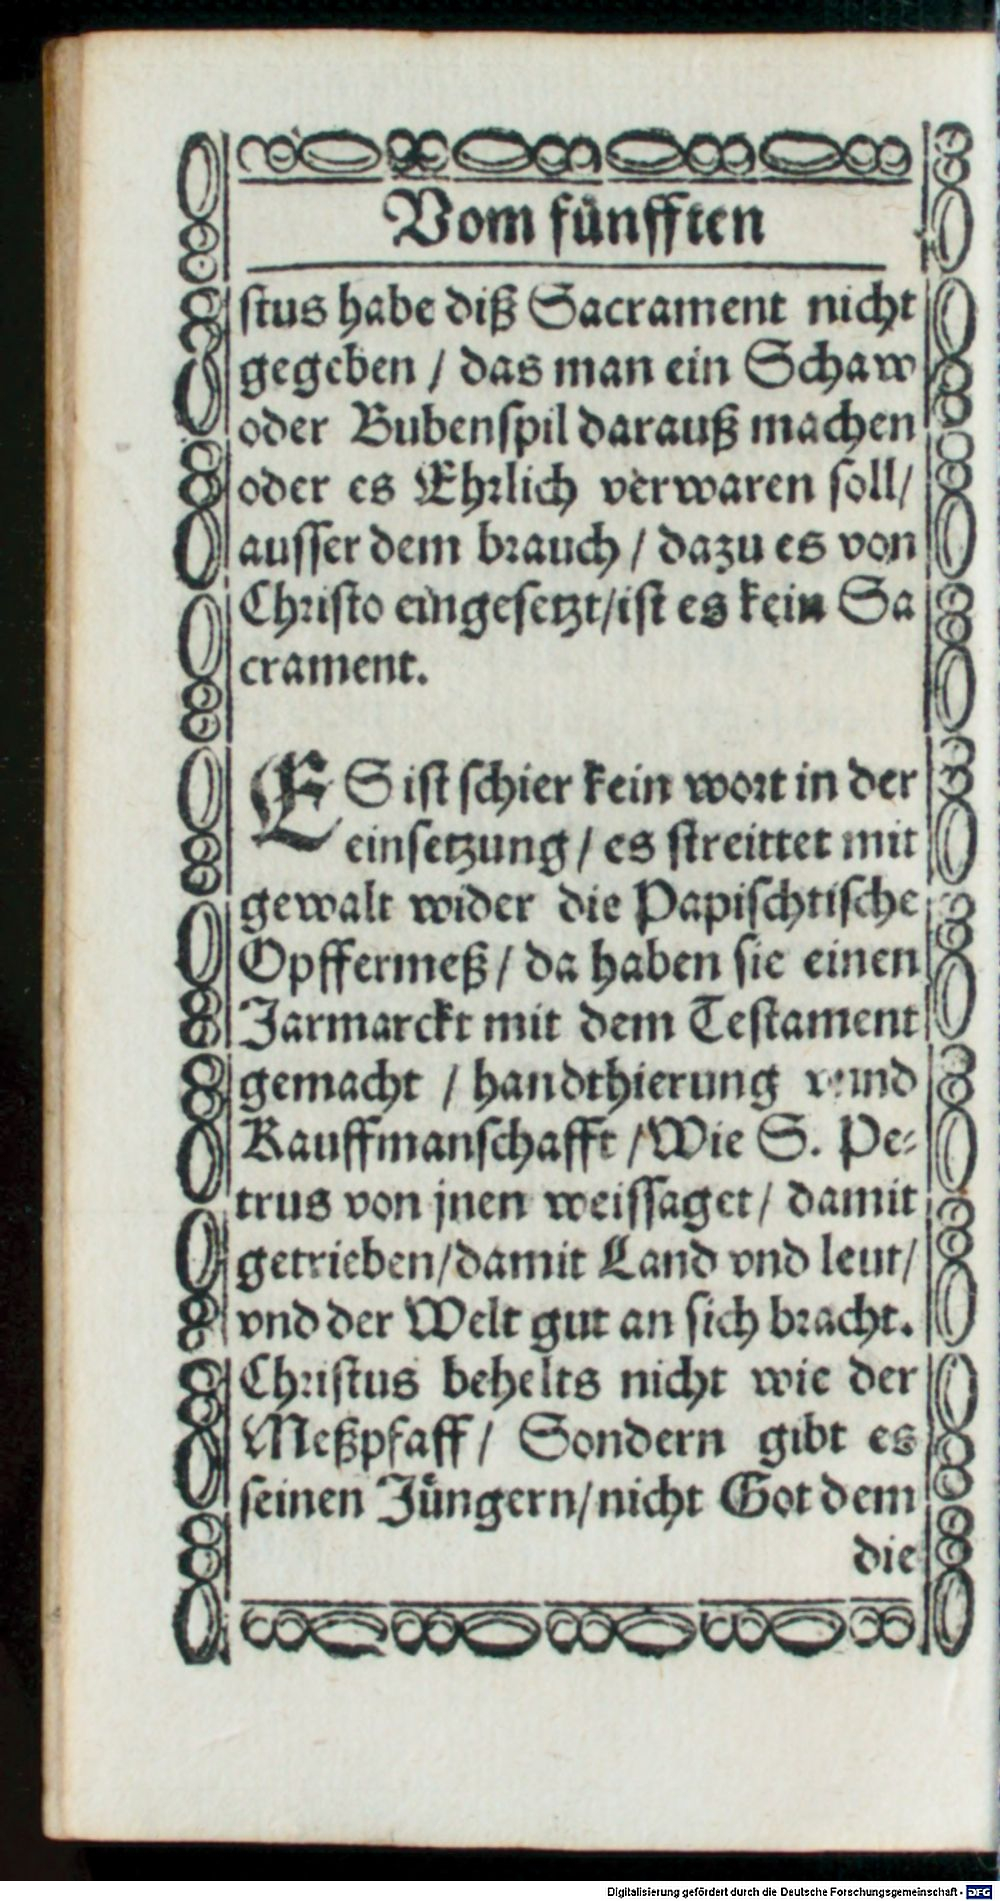 Vom fünfften
stus habe diß Sacrament nicht
gegeben / das man ein Schaw
oder Bubenspil darauß machen
oder es Ehrlich verwaren soll/
ausser dem brauch / dazu es von
Christo eingesetzt/ist es kein Sa
crament.
ES ist schier kein wort in der
einsetzung / es streittet mit
gewalt wider die Papischtische
Opffermeß / da haben sie einen
Jarmarckt mit dem Testament
gemacht / handthierung vnnd
Kauffmanschafft / Wie S. Pe⸗
trus von jnen weissaget / damit
getrieben/damit Land vnd leut/
vnd der Welt gut an sich bracht.
Christus behelts nicht wie der
Meßpfaff / Sondern gibt es
seinen Jüngern/nicht Got dem
die
Digitalisierung gefördert durch die Deutsche Forschungsgemeinschaft - DFG